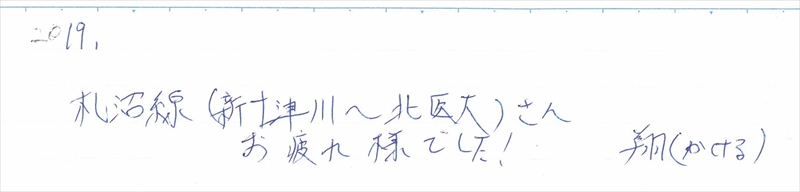 2019.
札沼線(新十津川〜北医大)さん
お疲れ様でした! 翔(かける)